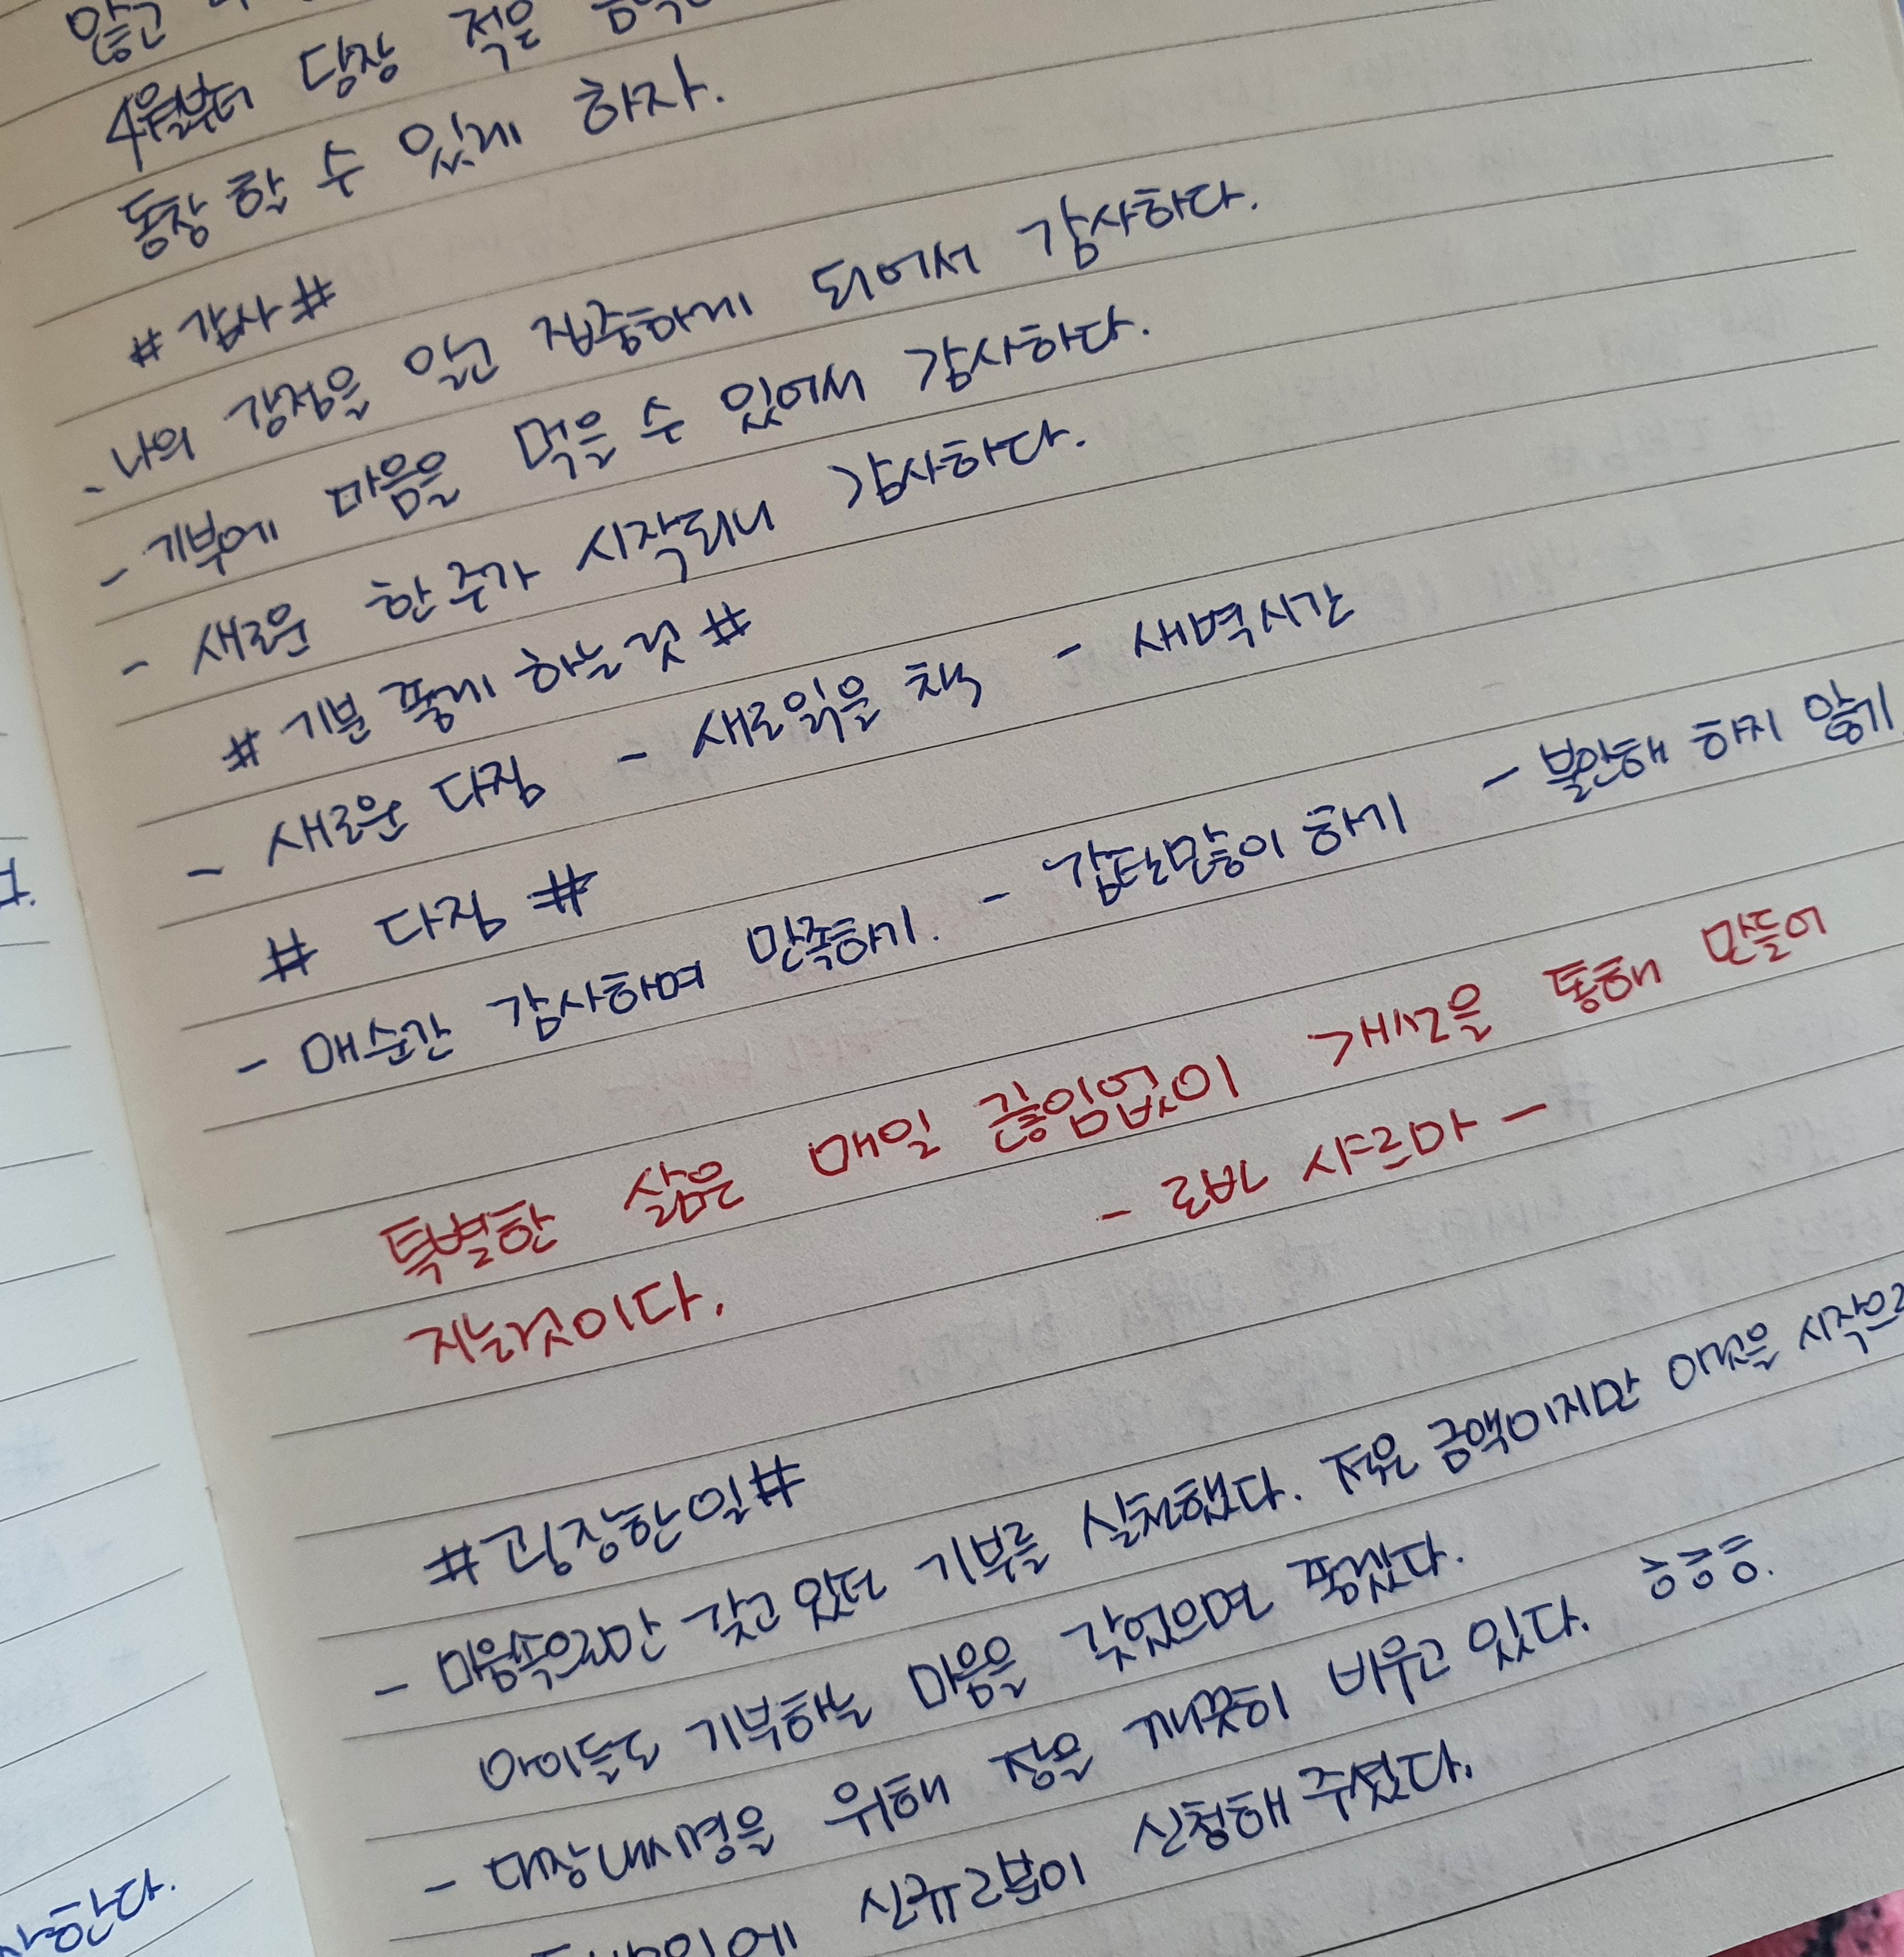 않고
4월부터 당장 적은
동참 할 수 있게 하자.
#감사#
- 나의 강점을 알고 집중하게 되어서 감사하다.
- 기부에 마음을 먹을 수 있어서 감사하다.
- 새로운 한주가 시작되니 감사하다.
# 기분 좋게 하는 것 #
- 새로운 다짐 - 새로 읽을 책 - 새벽시간
# 다짐 #
- 매순간 감사하며 만족하기. - 감탄많이 하기 - 불안해 하지 않기
특별한 삶은 매일 끊임없이 개선을 통해 만들어
지는것이다. - 로빈 샤르마 -
#굉장한일#
- 마음속으로만 갖고 있던 기부를 실천했다. 적은 금액이지만 이것을 시작으로
아이들도 기부하는 마음을 갖었으면 좋겠다.
- 대장내시경을 위해 장을 깨끗히 비우고 있다. ㅎㅎㅎ.
신규 2분이 신청해 주셨다.